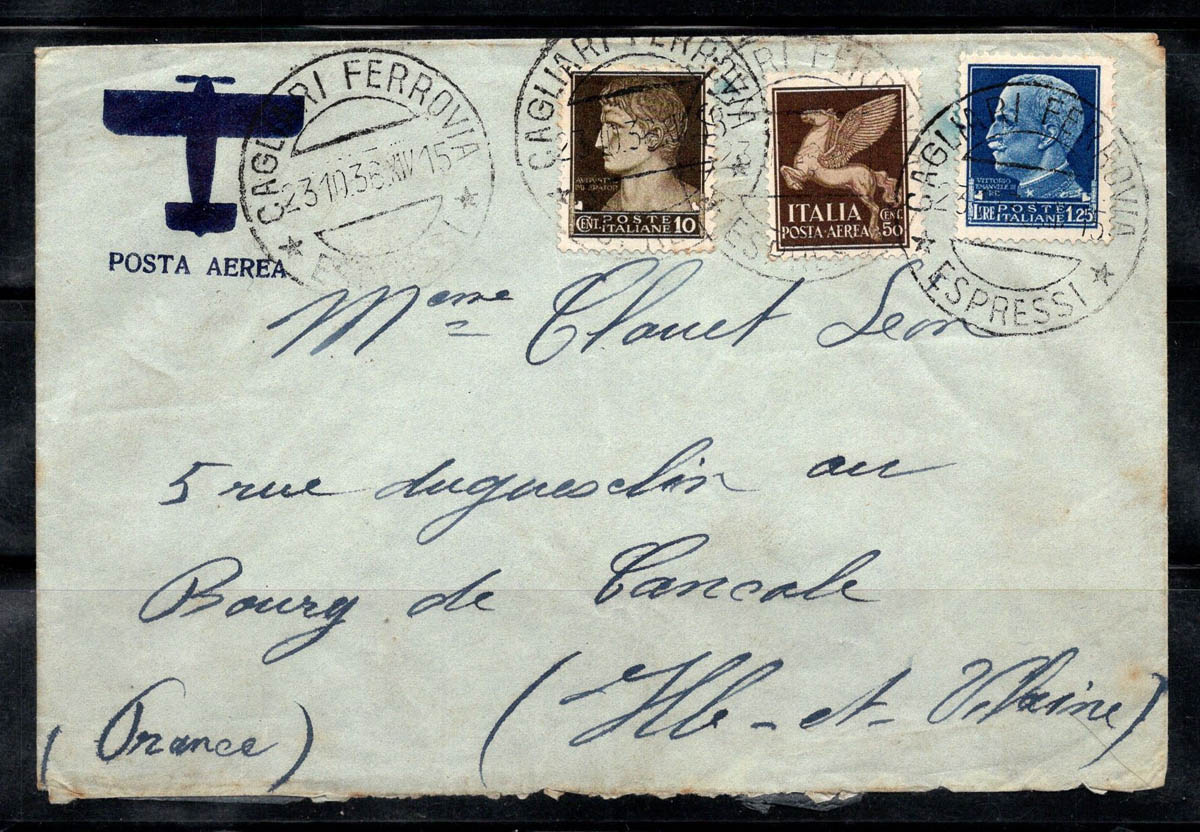 CAGLIARI FERROVIA
23 10 36 XIV 15
ESPRESSI
POSTA AEREA
CAGLIARI FERROVIA
AVGVSTO
IMPERATOR
CENT. POSTE ITALIANE 10
ITALIA
POSTA-AEREA
CENT. 50
VITTORIO
EMANVELE III
LIRE POSTE ITALIANE 1,25
CAGLIARI FERROVIA
ESPRESSI
Mme Clouet Leon
5 rue duguesclin au
Bourg de Cancale
(Ille-et-Vilaine)
(France)